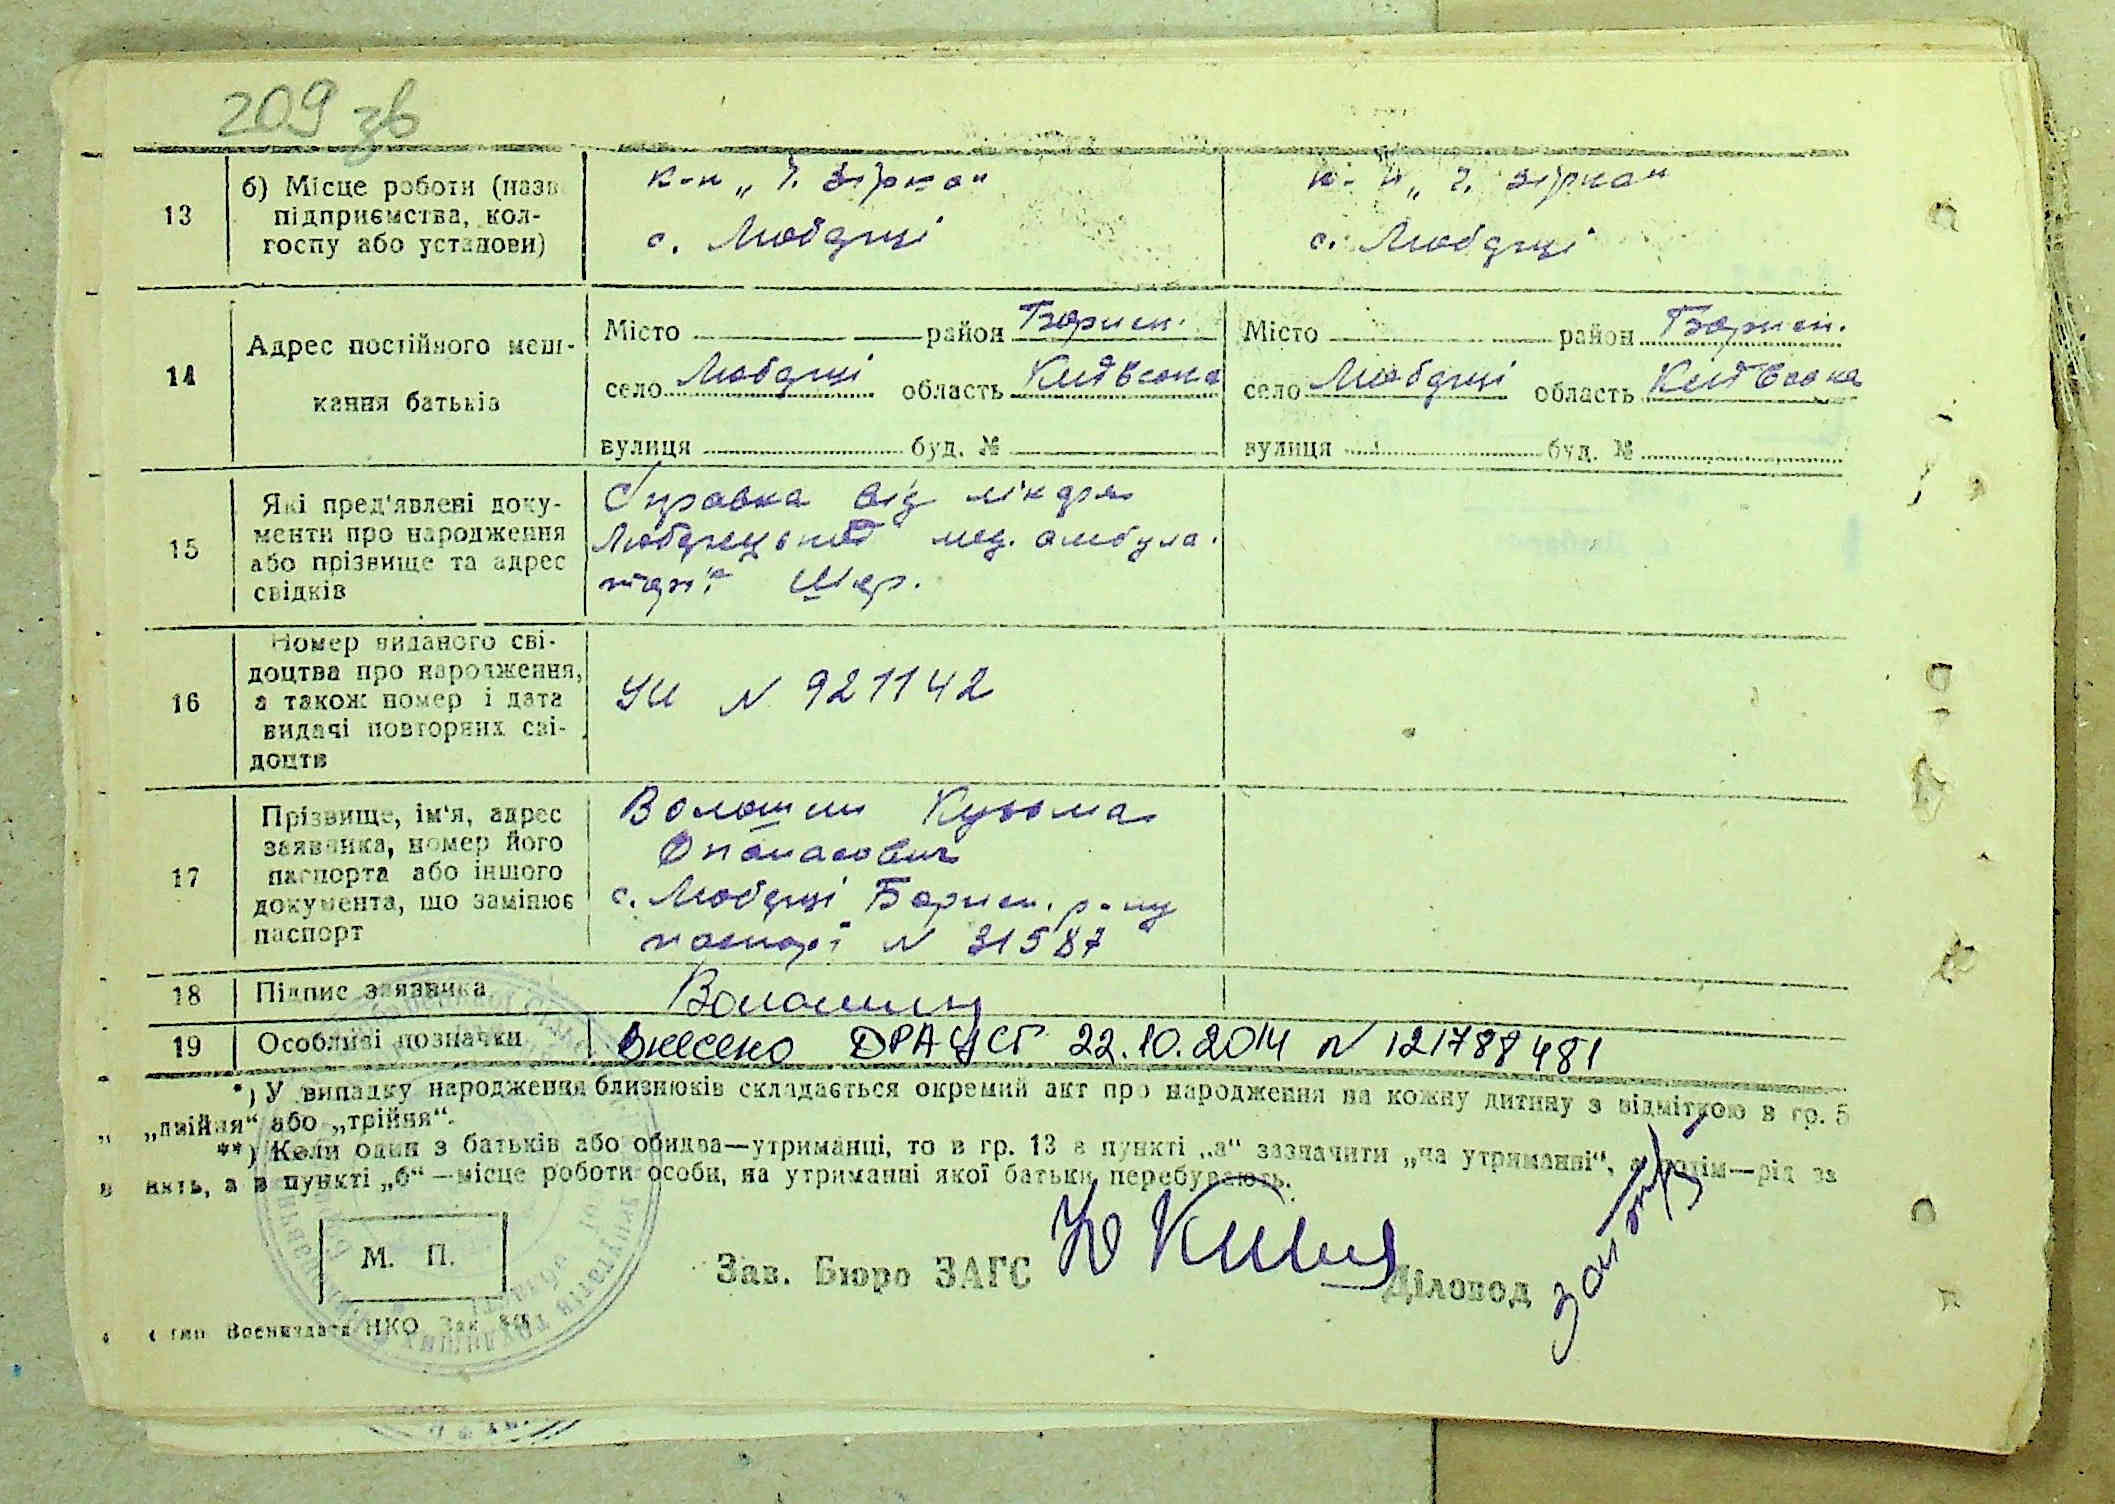 209 зв
13
б) Місце роботи (назв
підприємства, кол-
госпу або установи)
к-п „Ч. Зірка"
с. Любарці
к-п „Ч. Зірка"
с. Любарці
14
Адрес постійного меш-
кання батьків
Місто район Борисп.
село Любарці область Київська
вулиця буд. №
Місто район Борисп.
село Любарці область Київська
вулиця буд. №
15
Які пред'явлені доку-
менти про народження
або прізвище та адрес
свідків
Справка від лікаря
Любарецької мед. амбула-
торії
16
Номер виданого сві-
доцтва про народження,
а також номер і дата
видачі повторних сві-
доцтв
УИ N 921142
17
Прізвище, ім'я, адрес
заявника, номер його
паспорта або іншого
документа, що замінює
паспорт
Волошин Кузьма
Опанасович
с. Любарці Борисп. р-ну
паспорт N 31587
18
Підпис заявника
Волошин
19
Особливі позначки
Внесено ДРАЦСГ 22.10.2014 N 121788481
*) У випадку народження близнюків складається окремий акт про народження на кожну дитину з відміткою в гр. 5
„двійня" або „трійня".
**) Коли один з батьків або обидва—утриманці, то в гр. 13 в пункті „а" зазначити „на утриманні", а потім—рід за
нять, а в пункті „б"—місце роботи особи, на утриманні якої батьки перебувають.
М. П.
Зав. Бюро ЗАГС
Діловод
тип Воениздата НКО Зак.